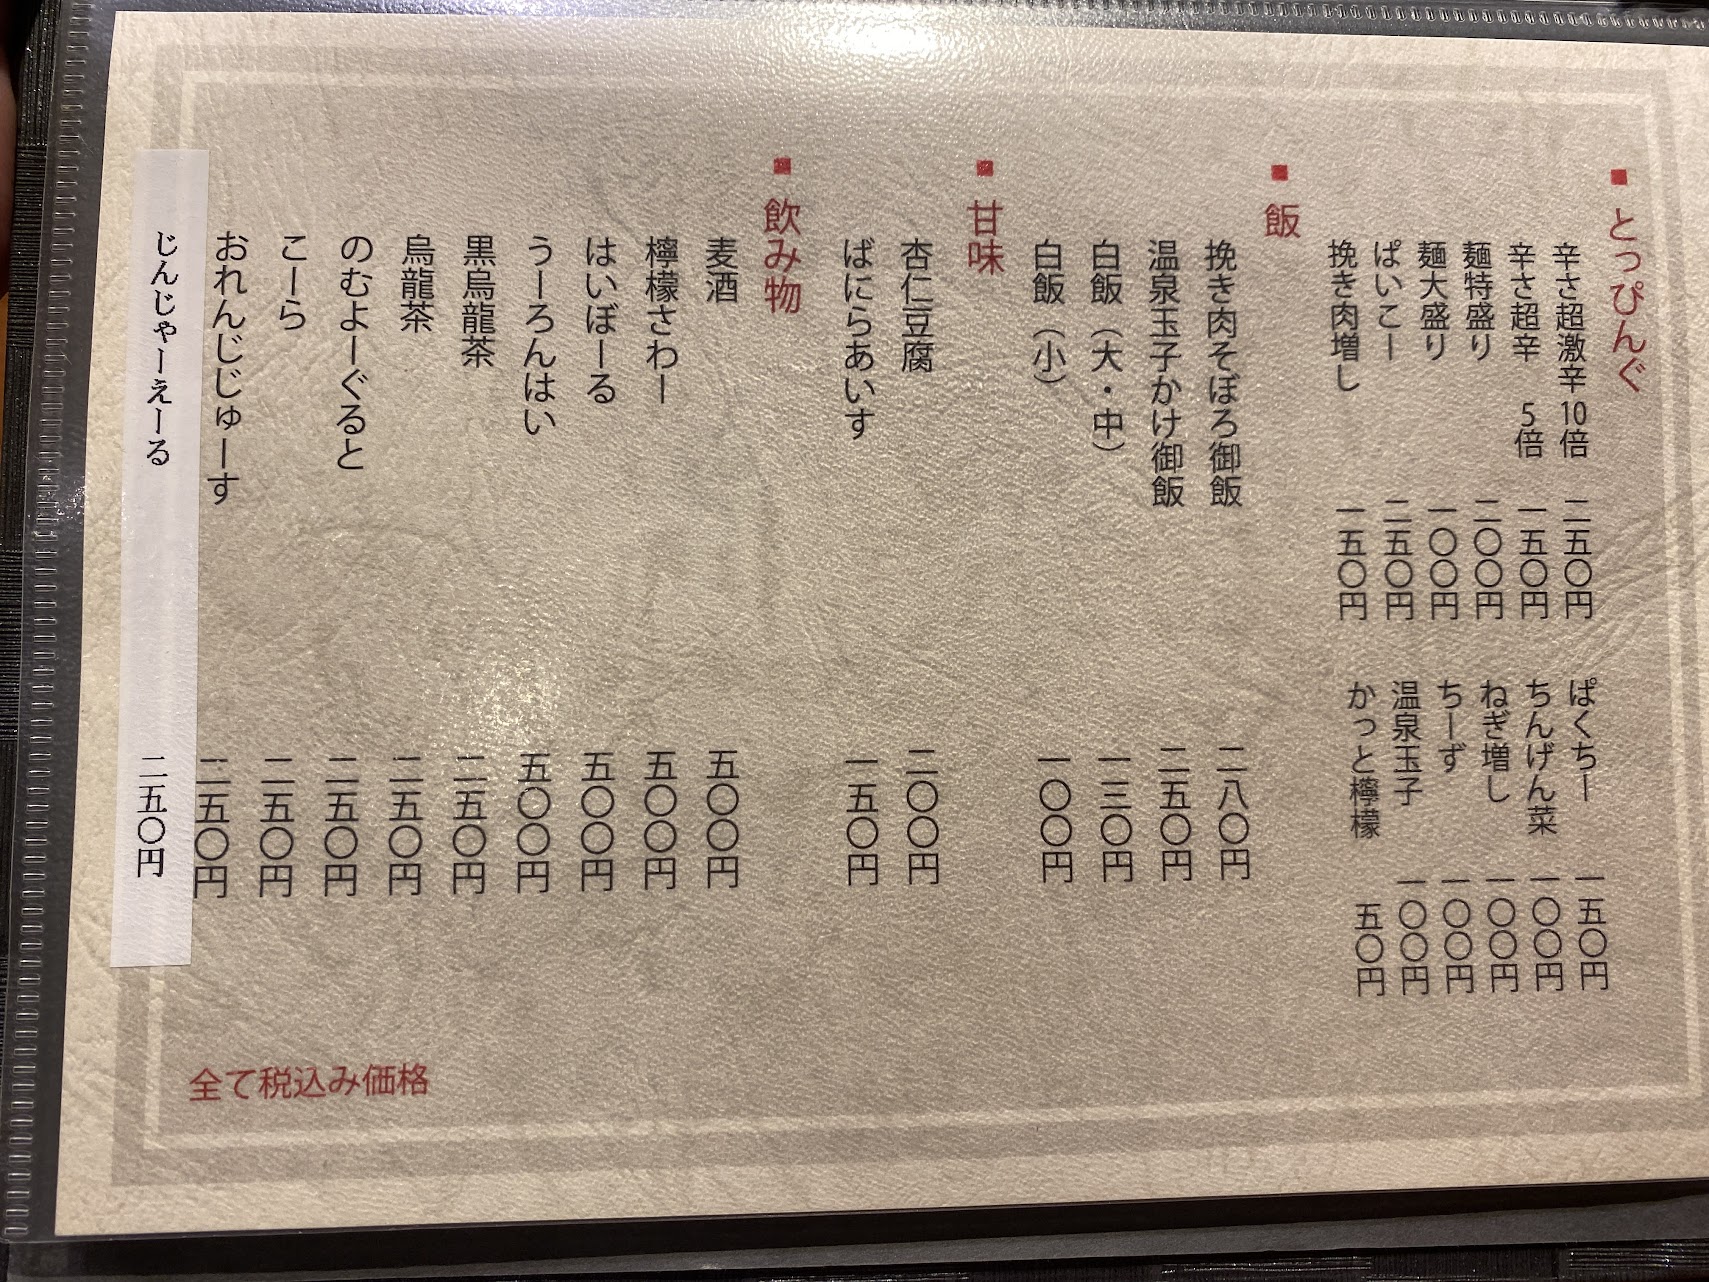 ■ とっぴんぐ
辛さ超激辛10倍 二五〇円
辛さ超辛 5倍 一五〇円
麺特盛り 二〇〇円
麺大盛り 一〇〇円
ぱいこー 二五〇円
挽き肉増し 一五〇円
ぱくちー 一五〇円
ちんげん菜 一〇〇円
ねぎ増し 一〇〇円
ちーず 一〇〇円
温泉玉子 一〇〇円
かっと檸檬 五〇円
■ 飯
挽き肉そぼろ御飯 二八〇円
温泉玉子かけ御飯 二五〇円
白飯（大・中） 一三〇円
白飯（小） 一〇〇円
■ 甘味
杏仁豆腐 二〇〇円
ばにらあいす 一五〇円
■ 飲み物
麦酒 五〇〇円
檸檬さわー 五〇〇円
はいぼーる 五〇〇円
うーろんはい 五〇〇円
黒烏龍茶 二五〇円
烏龍茶 二五〇円
のむよーぐると 二五〇円
こーら 二五〇円
おれんじじゅーす 二五〇円
じんじゃーえーる 二五〇円
全て税込み価格